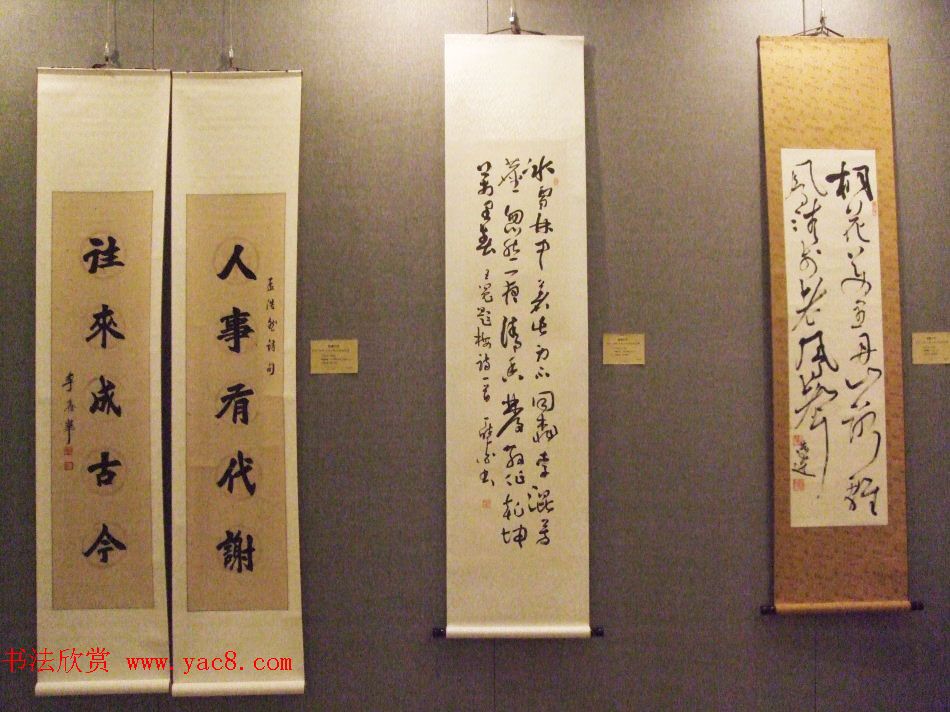 桐花萬里丹山路雛
鳳清於老鳳聲
冰雪林中著此身不同桃李混芳
塵忽然一夜清香發散作乾坤
萬里春 王冕題梅詩一首
人事有代謝
孟浩然詩句
往來成古今
书法欣赏 www.yac8.com